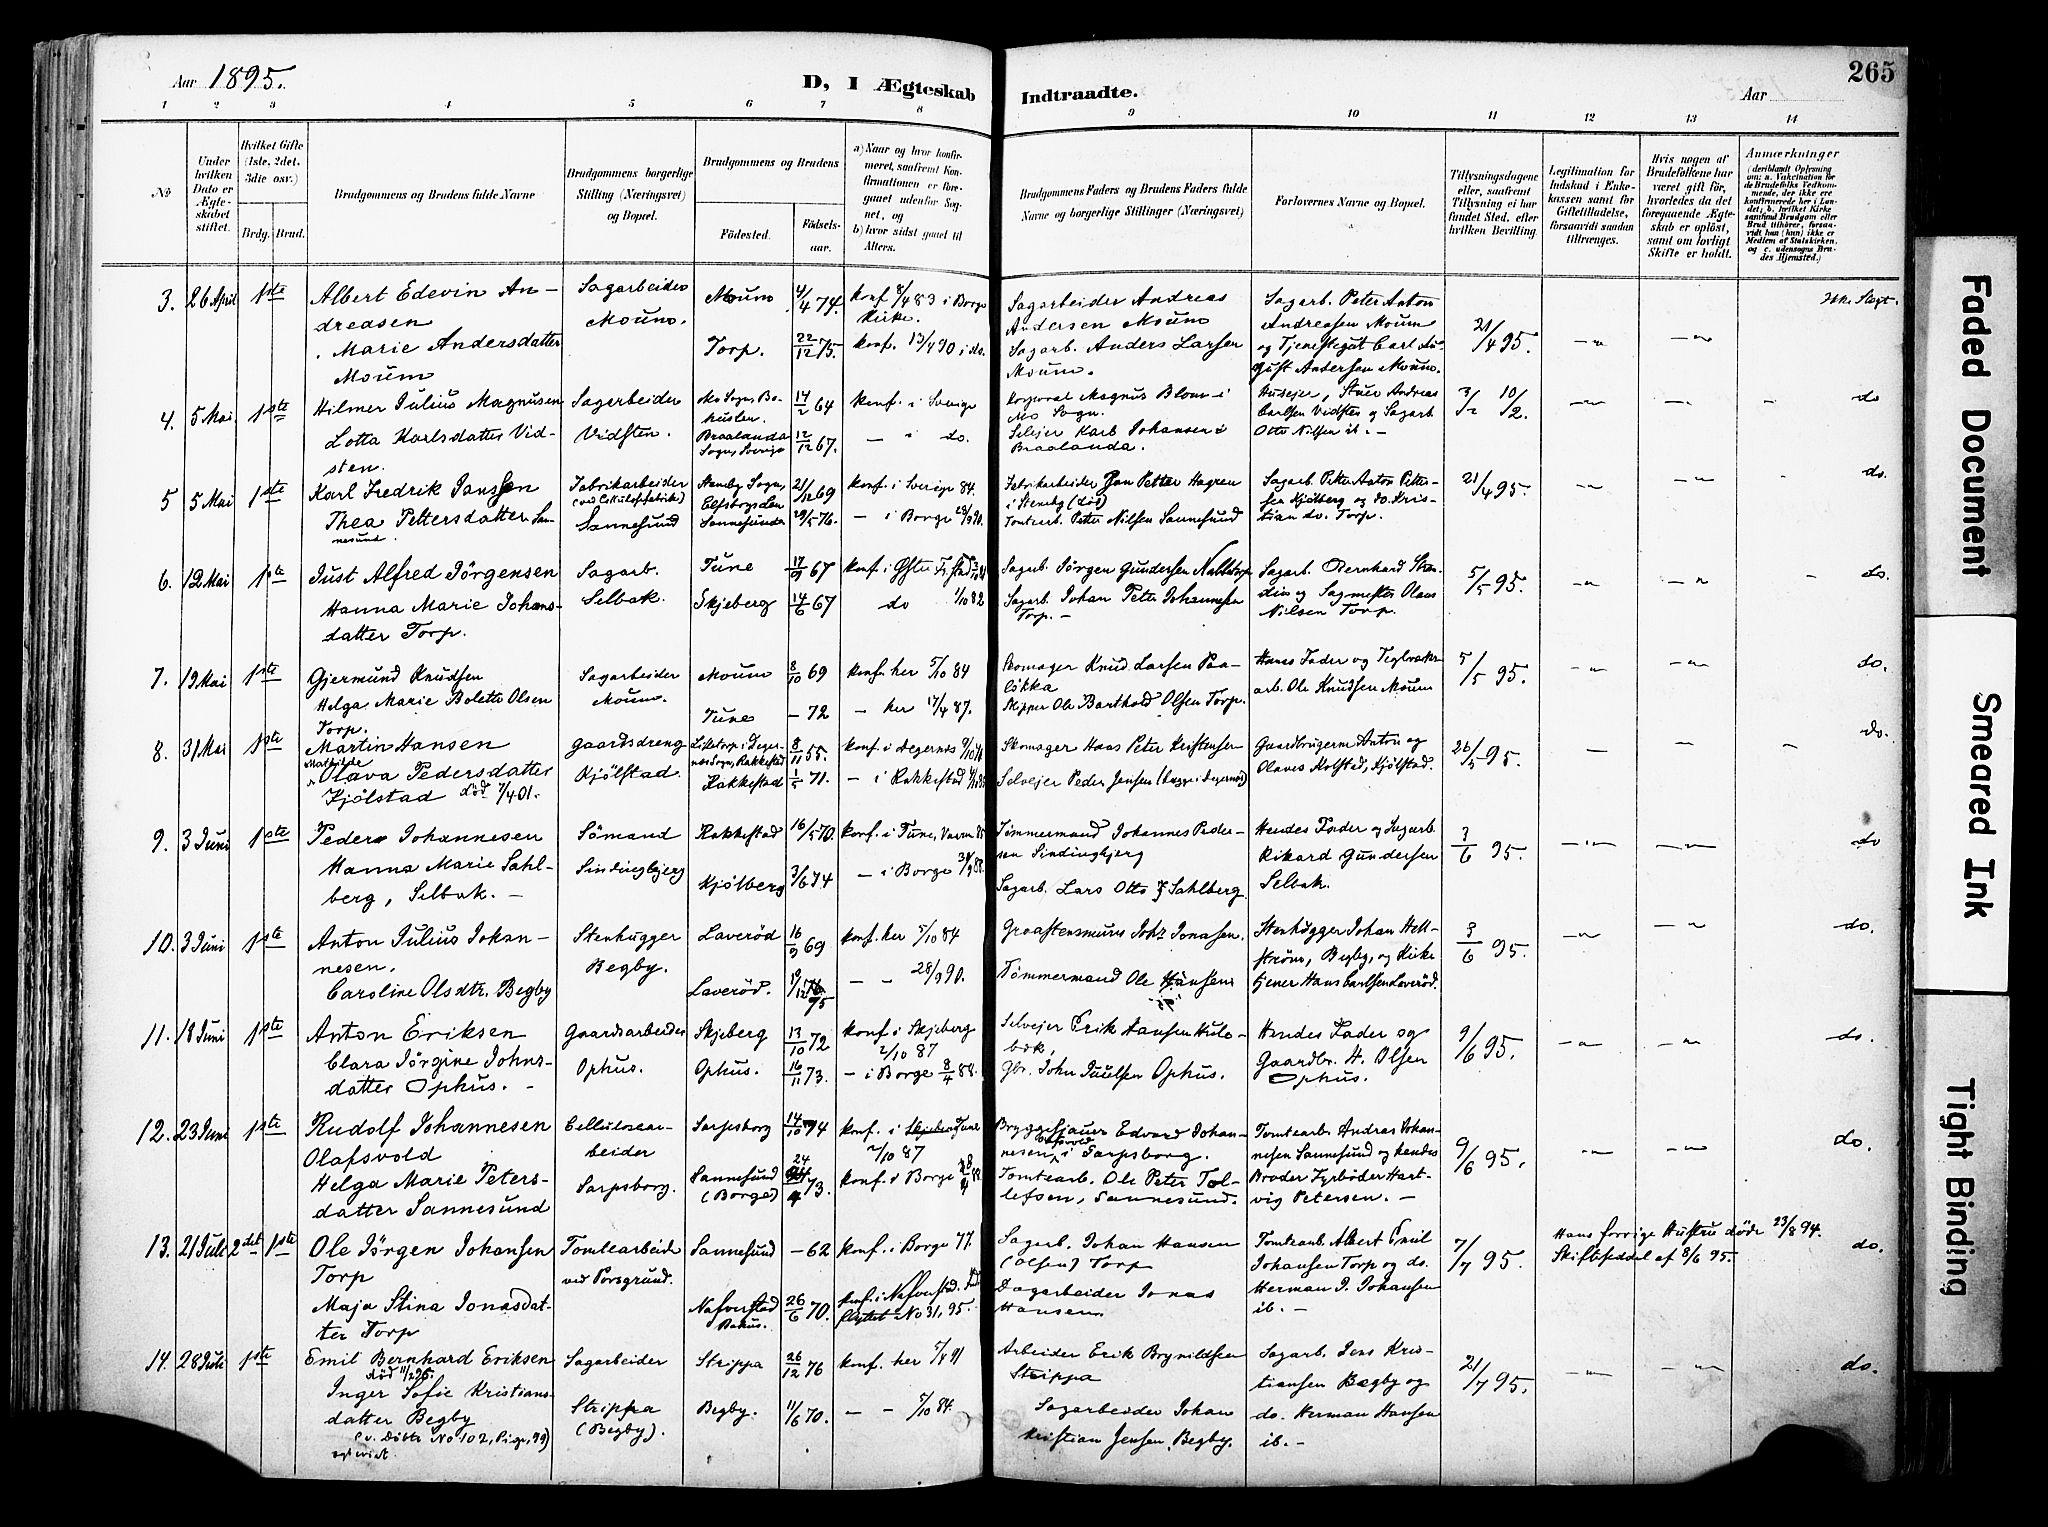 Aar 1895.
D, 1 Ægteskab
Indtraadte.
Aar
265
1 2 3 4 5 6 7 8 9 10 11 12 13 14
No
Under hvilken Dato er Ægteskabet stiftet.
Hvilket Gifte (1ste, 2det, 3die osv.)
Brdg. Brud.
Brudgommens og Brudens fulde Navne
Brudgommens borgerlige Stilling (Næringsvei) og Bopæl.
Brudgommens og Brudens
Födested.
Födsels-aar.
a) Naar og hvor konfirmeret, saafremt Konfirmationen er foregaaet udenfor Sognet, og
b) hvor sidst gaaet til Alters.
Brudgommens Faders og Brudens Faders fulde Navne og borgerlige Stillinger (Næringsvei)
Forlovernes Navne og Bopæl.
Tillysningsdagene eller, saafremt Tillysning ei har fundet Sted, efter hvilken Bevilling.
Legitimation for Indskud i Enkekassen samt for Giftetilladelse, forsaavidt saadan tiltrænges.
Hvis nogen af Brudefolkene har været gift för, hvorledes da det foregaaende Ægteskab er oplöst, samt om lovligt Skifte er holdt.
Anmærkninger
(deriblandt Oplysning om: a. Vakcination for de Brudefolks Vedkommende, der ikke ere konfirmerede her i Landet; b. hvilket Kirkesamfund Brudgom eller Brud tilhörer, forsaavidt han (hun) ikke er Medlem af Statskirken, og c. udensogns Brudes Hjemsted.)
3. 26 April 1ste Albert Edevin Andreasen
Marie Andersdatter Moum
Sagarbeider Moum.
Moum 4/4 74. konf 8/4 83 i Borge Kirke.
Torp. 22/12 75. konf. 13/4 90 i do.
Sagarbeider Andreas Andersen Moum
Sagarb. Anders Larsen Moum.
Sagarb. Peter Anton Andreasen Moum og Tjenestegut Carl August Andersen Moum.
21/4 95.
Ikke Slægt.
4. 5 Mai 1ste Hilmer Julius Magnusen
Lotta Karlsdatter Vidsten.
Sagarbeider Vidsten.
Mo Sogn, Bohuslen 14/2 64 konf. i Sverige
Braalanda Sogn, Sverige 12/12 67. – " do.
Korporal Magnus Blom i Mo Sogn.
Selvejer Karl Johansen i Braalanda.
Carlsen Vidsten og Sagarb. Otto Nilsen ib. –
3/2 10/2.
do
5 5 Mai 1ste Karl Fredrik Janssen
Thea Pettersdatter Sannesund.
Fabrikarbeider (ved Cellulosefabrik) Sannesund
Elfsborgs Len 21/12 69 konf. i Sverige 84.
Sannesund 29/5 76. – i Borge
Fabrikarbeider Jan Petter Hagren i Steneby (död)
Tomtearb. Peter Nilsen Sannesund
Sagarb. Petter Anton Pettersen Kjölberg og do. Kristian do. Torp.
21/4 95.
do.
6. 12 Mai 1ste Just Alfred Jörgensen
Hanna Marie Johansdatter Torp.
Sagarb. Selbak.
Tune 17/9 67
Skjeberg 14/6 67 do 1/10 82
Sagarb. Jörgen Gundersen
Sagarb. Johan Peter Johannesen Torp. –
Sagarb. Bernhard og Sagmester Olaus Nilsen Torp.
5/5 95.
do.
7. 19 Mai 1ste Gjermund Knudsen
Helga Marie Bolette Olsen Torp.
Sagarbeider Moum.
Moum 8/10 69 konf. her 5/10 84
Tune – 72 – her 17/4 87.
Skomager Knud Larsen Paalökka
Skipper Ole Barthold Olsen Torp.
Hans Fader og Teglværksarb. Ole Knudsen Moum
5/5 95.
do.
8. 31 Mai 1ste Martin Hansen
Mathilde
Olava Pedersdatter Kjölstad död 7/4 01.
Gaardsdreng Kjölstad.
8/11 55.
Rakkestad 1/5 71. – i Rakkestad
Skomager Hans Peter Kristensen
Selvejer Peder Jensen
Gaardbrugerne Anton og Olaves Kolstad, Kjölstad.
26/5 95.
do.
9. 3 Juni 1ste Peder Johannesen
Hanna Marie Sahlberg, Selbak. –
Sömand Sindingbjerg
Rakkestad 16/5 70. konf. i Tune,
Kjölberg 3/6 74 – i Borge
Tömmermand Johannes Pedersen Sindingbjerg
Sagarb. Lars Otto Sahlberg
Hendes Fader og Sagarb. Rikard Gundersen Selbak.
3/6 95.
do
10. 3 Juni 1ste Anton Julius Johannesen.
Caroline Olsdtr. Begby
Stenhugger Begby.
Laveröd 16/9 69 konf. her 5/10 84
Laveröd. – – 28/9 90.
Graastensmurer Johs Jonasen.
Tömmermand Ole Hansen
Stenhugger Johan Hellström, Begby, og Kirketjener Hans Carlsen Laveröd.
3/6 95.
do.
11. 18 Juni 1ste Anton Eriksen
Clara Jörgine Johnsdatter Ophus. –
Gaardsarbeider Ophus.
Skjeberg 13/10 72 konf. i Skjeberg 2/10 87
Ophus. 16/11 73. – i Borge 8/4 88.
Selvejer Erik Hansen Hulebak.
Gbr. John Paulsen Ophus.
Hendes Fader og Gaardbr. H. Olsen Ophus.
9/6 95.
do.
12. 23 Juni 1ste Rudolf Johannesen Olafsvold
Helga Marie Petersdatter Sannesund
Cellulosearbeider Sarpsborg.
Sarpsborg 14/10 74 konf. i Tune 2/10 87
Sannesund (Borge) 24/4 73. konf. i Borge
Bryggesjauer Edvard Johannesen i Sarpsborg.
Tomtearb. Ole Peter Tollefsen, Sannesund.
Tomtearb. Andreas Johannesen Sannesund og hendes Broder Fyrböder Hartvig Petersen. –
9/6 95.
do.
13. 21 Juli 2det 1ste Ole Jörgen Johansen Torp
Maja Stina Jonasdatter Torp
Tomtearbeider ved Porsgrund.
Sannesund – 62 konf. i Borge 77.
Nafverstad Bahus. 26/6 70. konf. i Nafverstad. Ind flyttet No 31, 95.
Sagarb. Johan Hansen (Olsen) Torp
Dagarbeider Jonas Hansen
Tomtearb. Albert Emil Johansen Torp og do. Herman J. Johansen ib. –
7/7 95.
Hans forrige Hustru döde 23/8 94.
Skifteseddel af 8/6 95.
do.
14. 28 Juli 1ste Emil Bernhard Eriksen
död 11/2 96.
Inger Sofie Kristiansdatter Begby
(v. Döbte No 102, Piger, 99)
Sagarbeider Strippa (Begby).
Strippa 26/12 76 konf. her 5/4 91
Begby. 11/6 70. – – 5/10 84.
Arbeider Erik Brynildsen Strippa
Sagarbeider Johan Kristian Jensen, Begby.
Sagarb. Jens Kristiansen Begby og do. Herman Hansen ib. –
21/7 95.
do.
Faded Document
Smeared Ink
Tight Binding